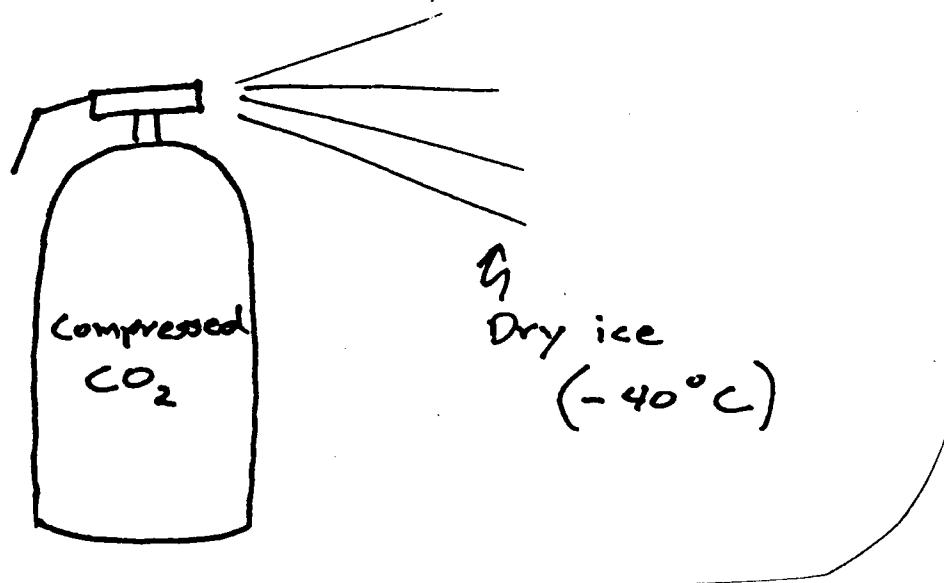 Compressed
CO₂
Dry ice
(-40°C)